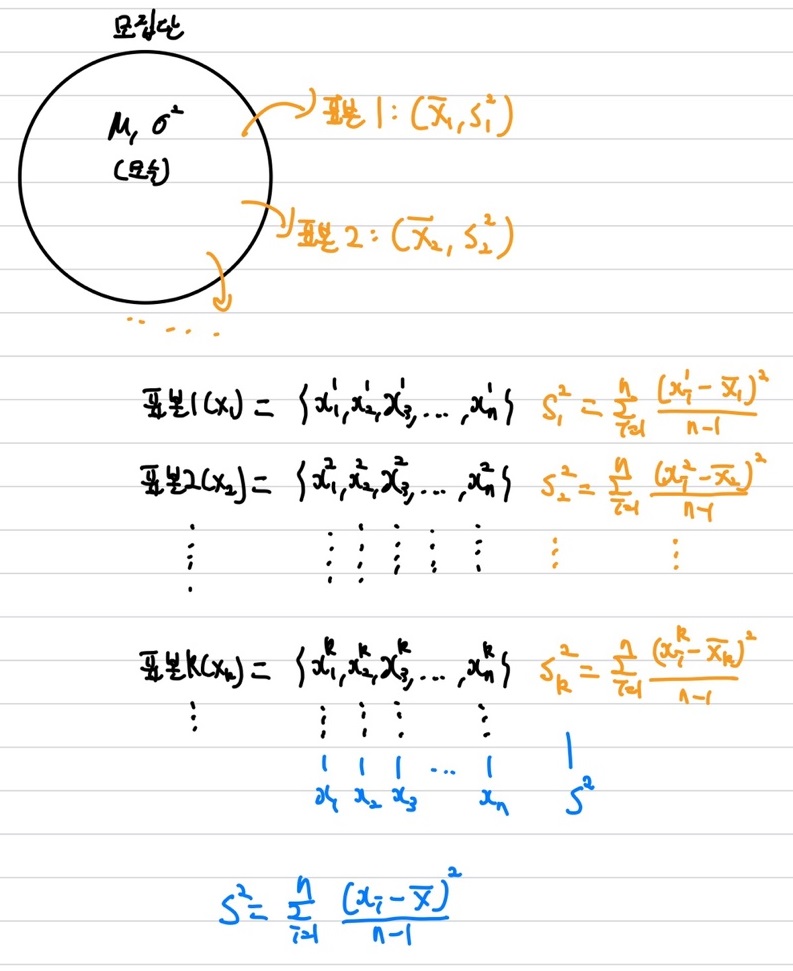 모집단
μ, σ²
(모수)
표본 1 : (x̄₁, S₁²)
표본 2 : (x̄₂, S₂²)
.. . . .
표본1(x₁) = {x₁¹, x₂¹, x₃¹, ..., xₙ¹} S₁² = Σᵢ₌₁ⁿ (xᵢ¹ - x̄₁)² / (n-1)
표본2(x₂) = {x₁², x₂², x₃², ..., xₙ²} S₂² = Σᵢ₌₁ⁿ (xᵢ² - x̄₂)² / (n-1)
⋮ ⋮ ⋮ ⋮ ⋮ ⋮ ⋮ ⋮
표본k(xₖ) = {x₁ᵏ, x₂ᵏ, x₃ᵏ, ..., xₙᵏ} Sₖ² = Σᵢ₌₁ⁿ (xᵢᵏ - x̄ₖ)² / (n-1)
⋮ ⋮ ⋮ ⋮ ⋮
| | | ... | |
x₁ x₂ x₃ xₙ S²
S² = Σᵢ₌₁ⁿ (xᵢ - x̄)² / (n-1)